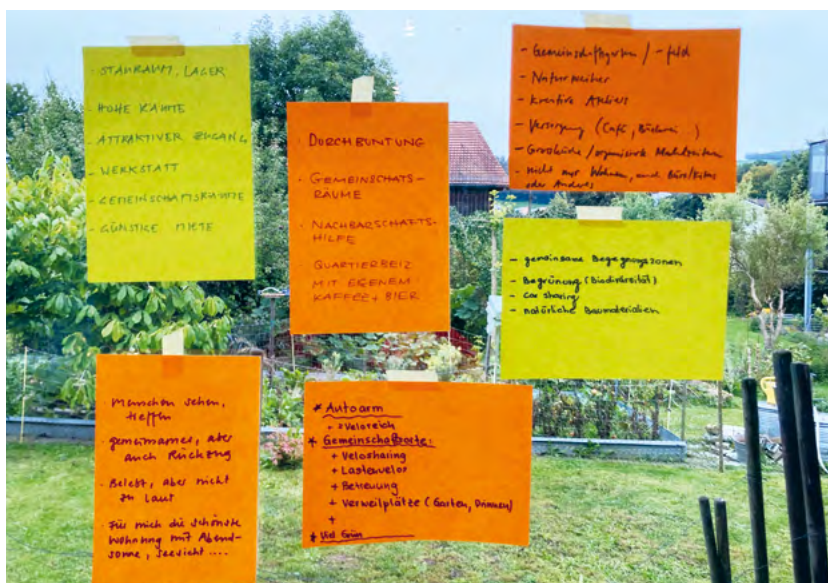 - STAURAUM, LAGER
- HOHE RÄUME
- ATTRAKTIVER ZUGANG
- WERKSTATT
- GEMEINSCHAFTSRÄUME
- GÜNSTIGE MIETE
· DURCHBUNTUNG
· GEMEINSCHATS-
RÄUME
· NACHBARSCHAFTS-
HILFE
· QUARTIERBEIZ
MIT EIGENEM
KAFFEE + BIER
- Gemeinschaftsgarten / -feld
- Naturweiher
- Kreative Ateliers
- Versorgung (Café, Bächerei ..)
- Grossküche / organisierte Mahlzeiten
- nicht nur Wohnen, auch Büro/Kitas
oder Anderes
- gemeinsame Begegnungszonen
- Begrünung (Biodiversität)
- Car sharing
- natürliche Baumaterialien
· Menschen sehen,
treffen
· gemeinsamer, aber
auch Rückzug
· Belebt, aber nicht
zu laut
· Für mich die schönste
Wohnung mit Abend-
sonne, Seesicht ....
* Autoarm
+ =Veloreich
* Gemeinschaftsorte:
+ Velosharing
+ Lastenvelos
+ Betreuung
+ Verweilplätze (Garten, Drinnen)
+
* Viel Grün